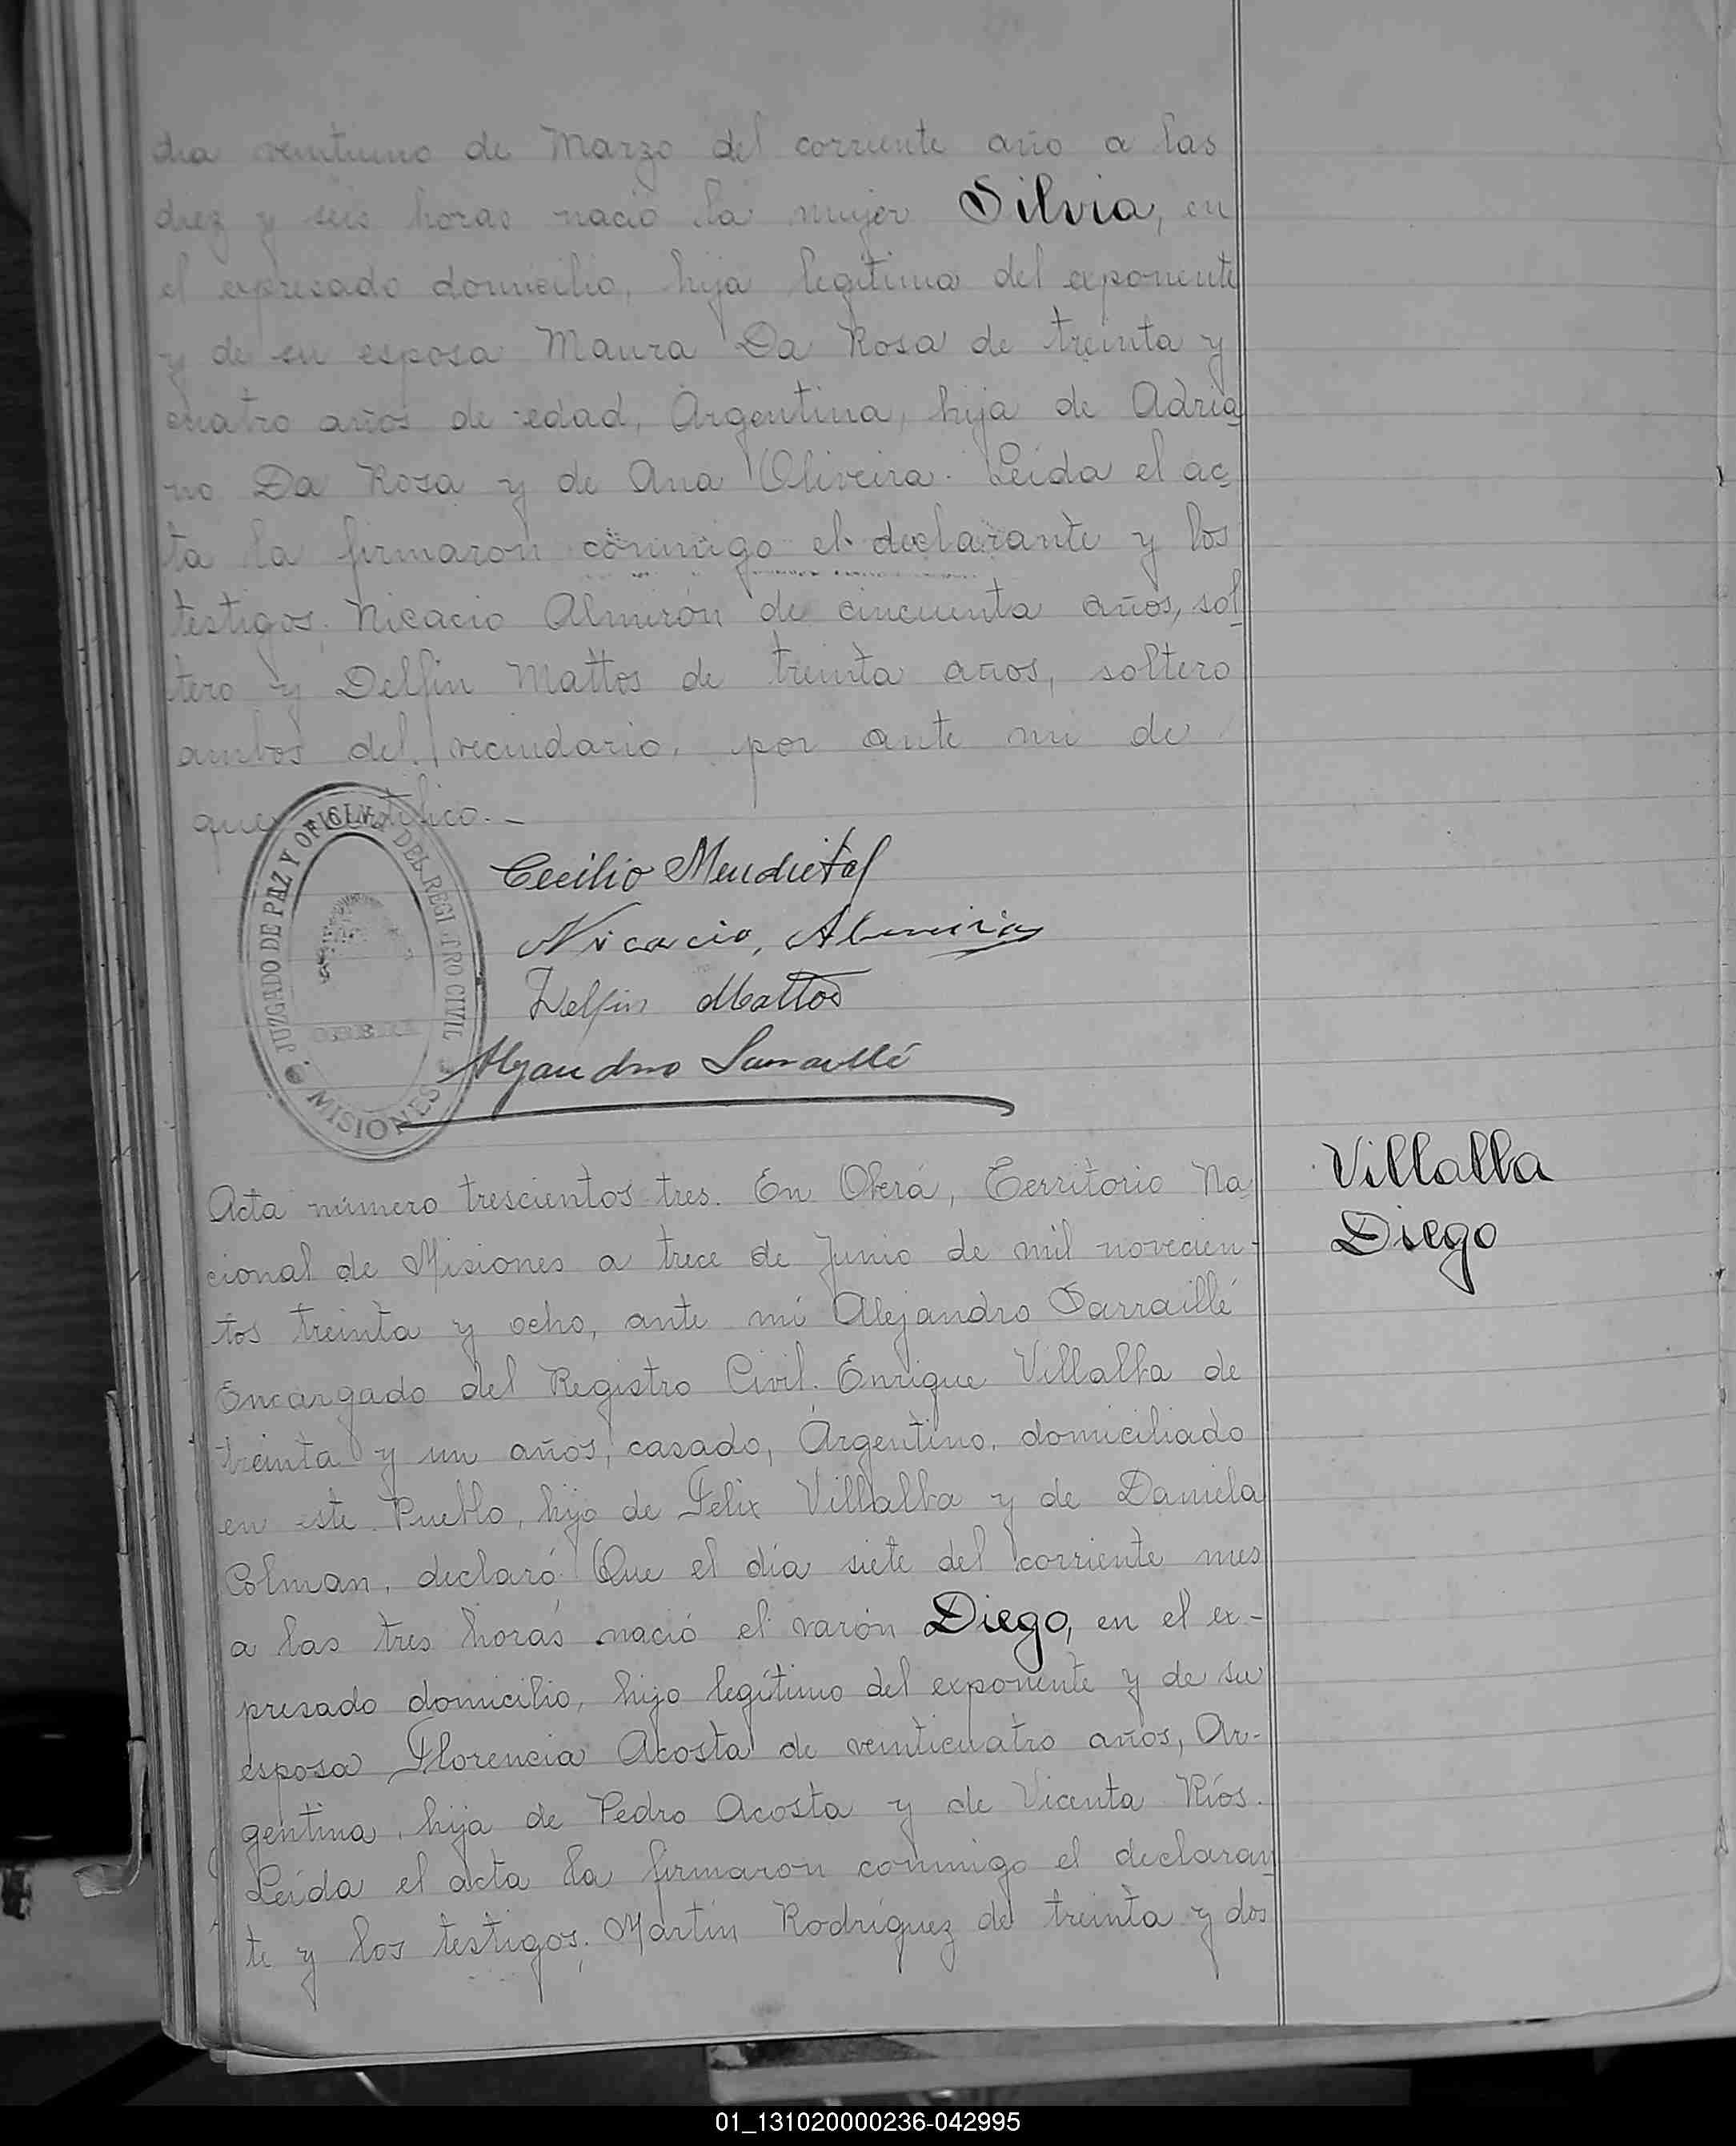 dia veintiuno de Marzo del corriente año a las
diez y seis horas nació la mujer Silvia, en
el expresado domicilio, hija legitima del exponente
y de su esposa Maura Da Rosa de treinta y
cuatro años de edad, Argentina, hija de Adria
no Da Rosa y de Ana Oliveira. Leida el ac
ta la firmaron conmigo el declarante y los
testigos, Nicacio Almirón de cincuenta años, sol
tero y Delfin Mattos de treinta años, soltero
ambos del vecindario, por ante mi de
que certifico.
JUZGADO DE PAZ Y OFICINA DEL REGISTRO CIVIL
MISIONES
Cecilio Mendieta
Nicacio, Almirón
Delfin Mattos
Alejandro Sarraillé
Villalba
Diego
Acta número trescientos tres. En Oberá, Territorio Na
cional de Misiones a trece de Junio de mil novecien-
tos treinta y ocho, ante mi Alejandro Sarraillé
Encargado del Registro Civil. Enrique Villalba de
treinta y un años, casado, Argentino, domiciliado
en este Pueblo, hijo de Felix Villalba y de Daniela
Colman, declaró: Que el día siete del corriente mes
a las tres horas nació el varón Diego, en el ex-
presado domicilio, hijo legítimo del exponente y de su
esposa Florencia Acosta de veinticuatro años, Ar-
gentina, hija de Pedro Acosta y de Vicenta Ríos.
Leída el acta la firmaron conmigo el declaran
te y los testigos, Martín Rodríguez de treinta y dos
01_131020000236-042995